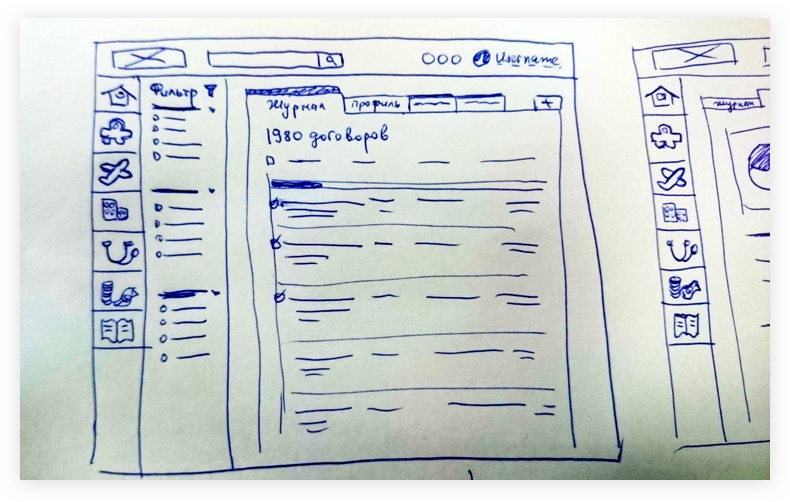 Username
Фильтр
Журнал
профиль
+
1980 договоров
журнал